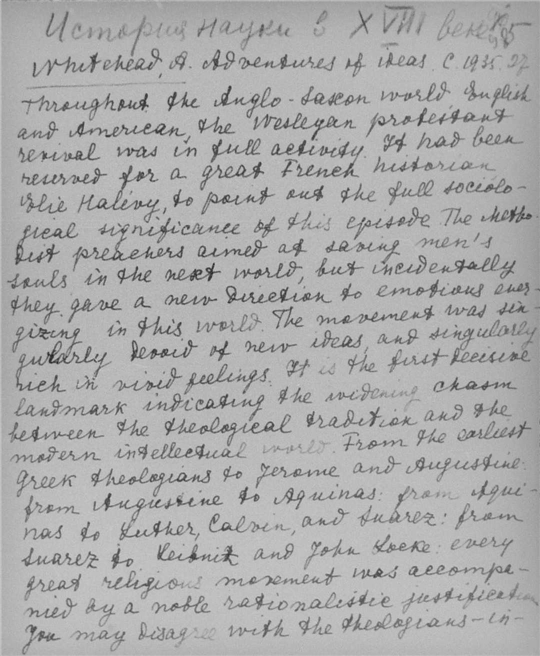 История науки в XVIII веке
Whitehead, A. Adventures of ideas. C. 1935. 27
Throughout the Anglo-Saxon world English
and American, the Wesleyan protestant
revival was in full activity. It had been
reserved for a great French historian
Elie Halévy, to point out the full sociolo-
gical significance of this episode. The Metho-
dist preachers aimed at saving men's
souls in the next world, but incidentally
they gave a new direction to emotions ener-
gizing in this world. The movement was sin-
gularly devoid of new ideas, and singularly
rich in vivid feelings. It is the first decisive
landmark indicating the widening chasm
between the theological tradition and the
modern intellectual world. From the earliest
Greek theologians to Jerome and Augustine:
from Augustine to Aquinas: from Aqui-
nas to Luther, Calvin, and Suarez: from
Suarez to Leibnitz and John Locke: every
great religious movement was accompa-
nied by a noble rationalistic justification
You may disagree with the theologians-in-